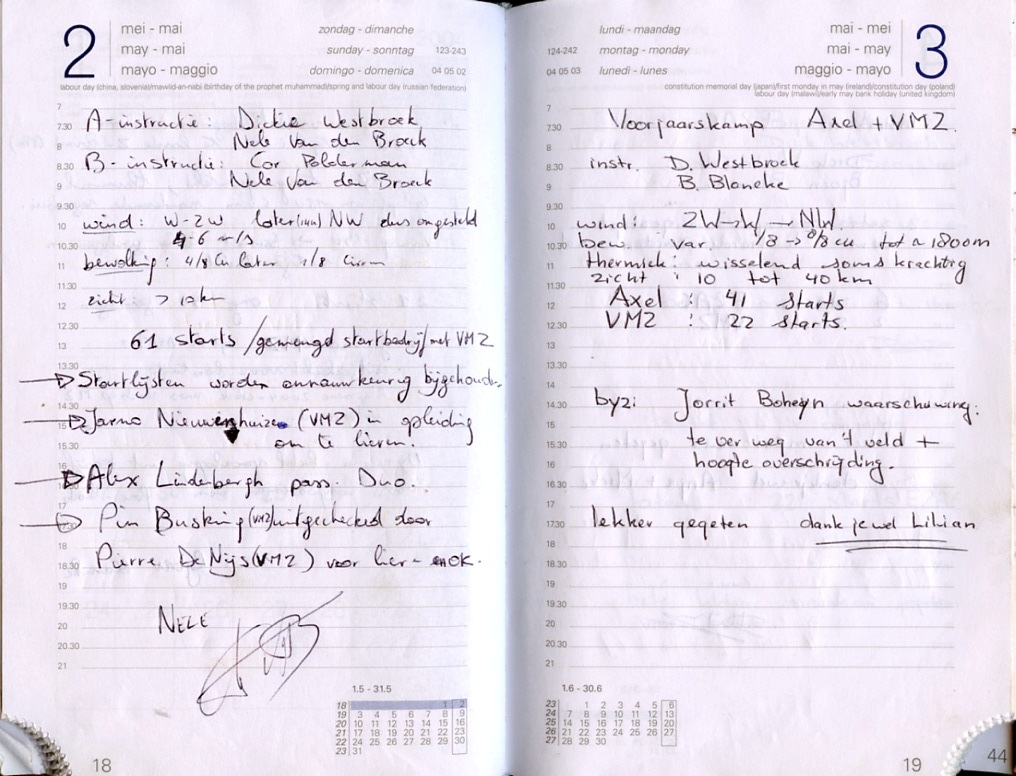 2
mei - mai
may - mai
mayo - maggio
zondag - dimanche
sunday - sonntag 123-243
domingo - domenica 04 05 02
labour day (china, slovenia)/mawlid-an-nabi (birthday of the prophet muhammad)/spring and labour day (russian federation)
A-instructie: Dickie Westbroek
Nele Van den Broeck
B-instructie: Cor Polderman
Nele Van den Broeck
wind: W-ZW later NW dus omgesteld
4-6 m/s
bewolking: 4/8 Cu later 1/8 Cirren
zicht > 10 km
61 starts /gemengd startbedrijf/met VMZ
Startlijsten worden onnauwkeurig bijgehouden.
Jarno Nieuwenhuize (VMZ) in opleiding
om te lieren.
Alex Lindenbergh pass. Duo.
Pim Busking (VMZ) uitgecheckd door
Pierre De Nijs (VMZ) voor lier OK.
NELE
1.5 - 31.5
18 1 2
19 3 4 5 6 7 8 9
20 10 11 12 13 14 15 16
21 17 18 19 20 21 22 23
22 24 25 26 27 28 29 30
23 31
18
lundi - maandag
124-242 montag - monday
04 05 03 lunedì - lunes
mei - mei
mai - may
maggio - mayo
3
constitution memorial day (japan)/first monday in may (ireland)/constitution day (poland)
labour day (malawi)/early may bank holiday (united kingdom)
Voorjaarskamp Axel + VMZ
instr. D. Westbroek
B. Blancke
wind: ZW→W→NW.
bew. var. 1/8 → 8/8 cu tot ± 1800m
thermiek: wisselend soms krachtig
zicht: 10 tot 40 km
Axel : 41 starts
VMZ : 22 starts.
byz: Jorrit Boheyn waarschuwing:
te ver weg van 't veld +
hoogte overschrijding.
lekker gegeten dank je wel Lilian
1.6 - 30.6
23 1 2 3 4 5 6
24 7 8 9 10 11 12 13
25 14 15 16 17 18 19 20
26 21 22 23 24 25 26 27
27 28 29 30
19
44